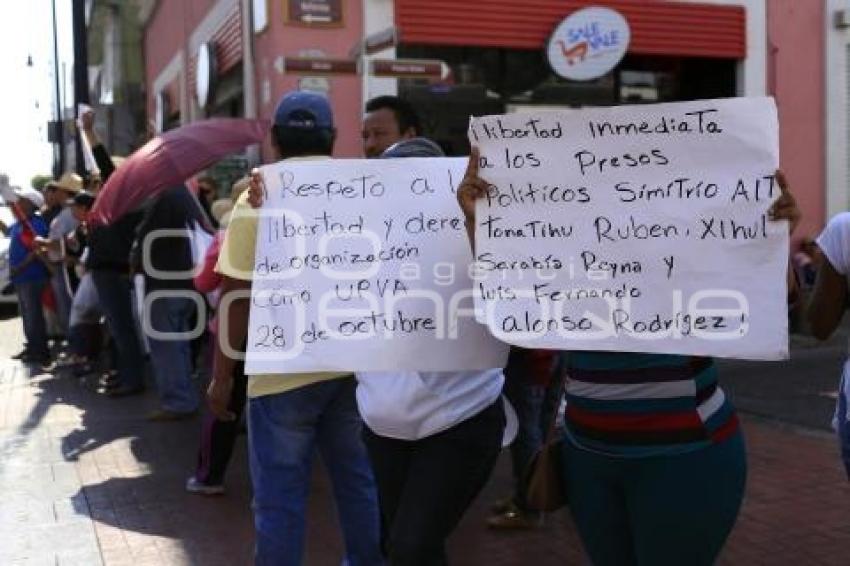 SALE VALE
¡Respeto a la
libertad y dere
de organización
como UPVA
28 de octubre!
¡libertad Inmediata
a los Presos
Politicos Simitrio
Tonatihu Ruben, Xihul
Sarabia Reyna y
luis Fernando
alonso Rodrigez!
agencia
enfoque